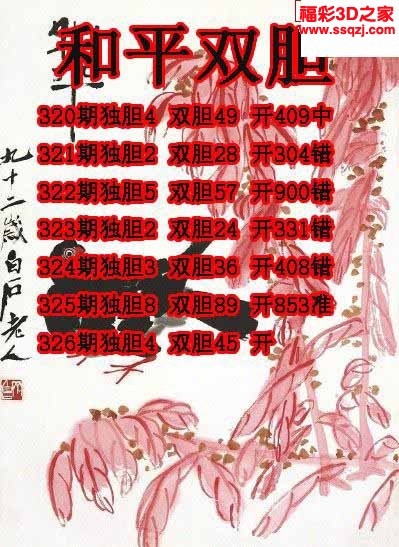 福彩3D之家
www.ssqzj.com
和平双胆
320期独胆4 双胆49 开409中
321期独胆2 双胆28 开304错
322期独胆5 双胆57 开900错
323期独胆2 双胆24 开331错
324期独胆3 双胆36 开408错
325期独胆8 双胆89 开853准
326期独胆4 双胆45 开
九十二岁白石老人